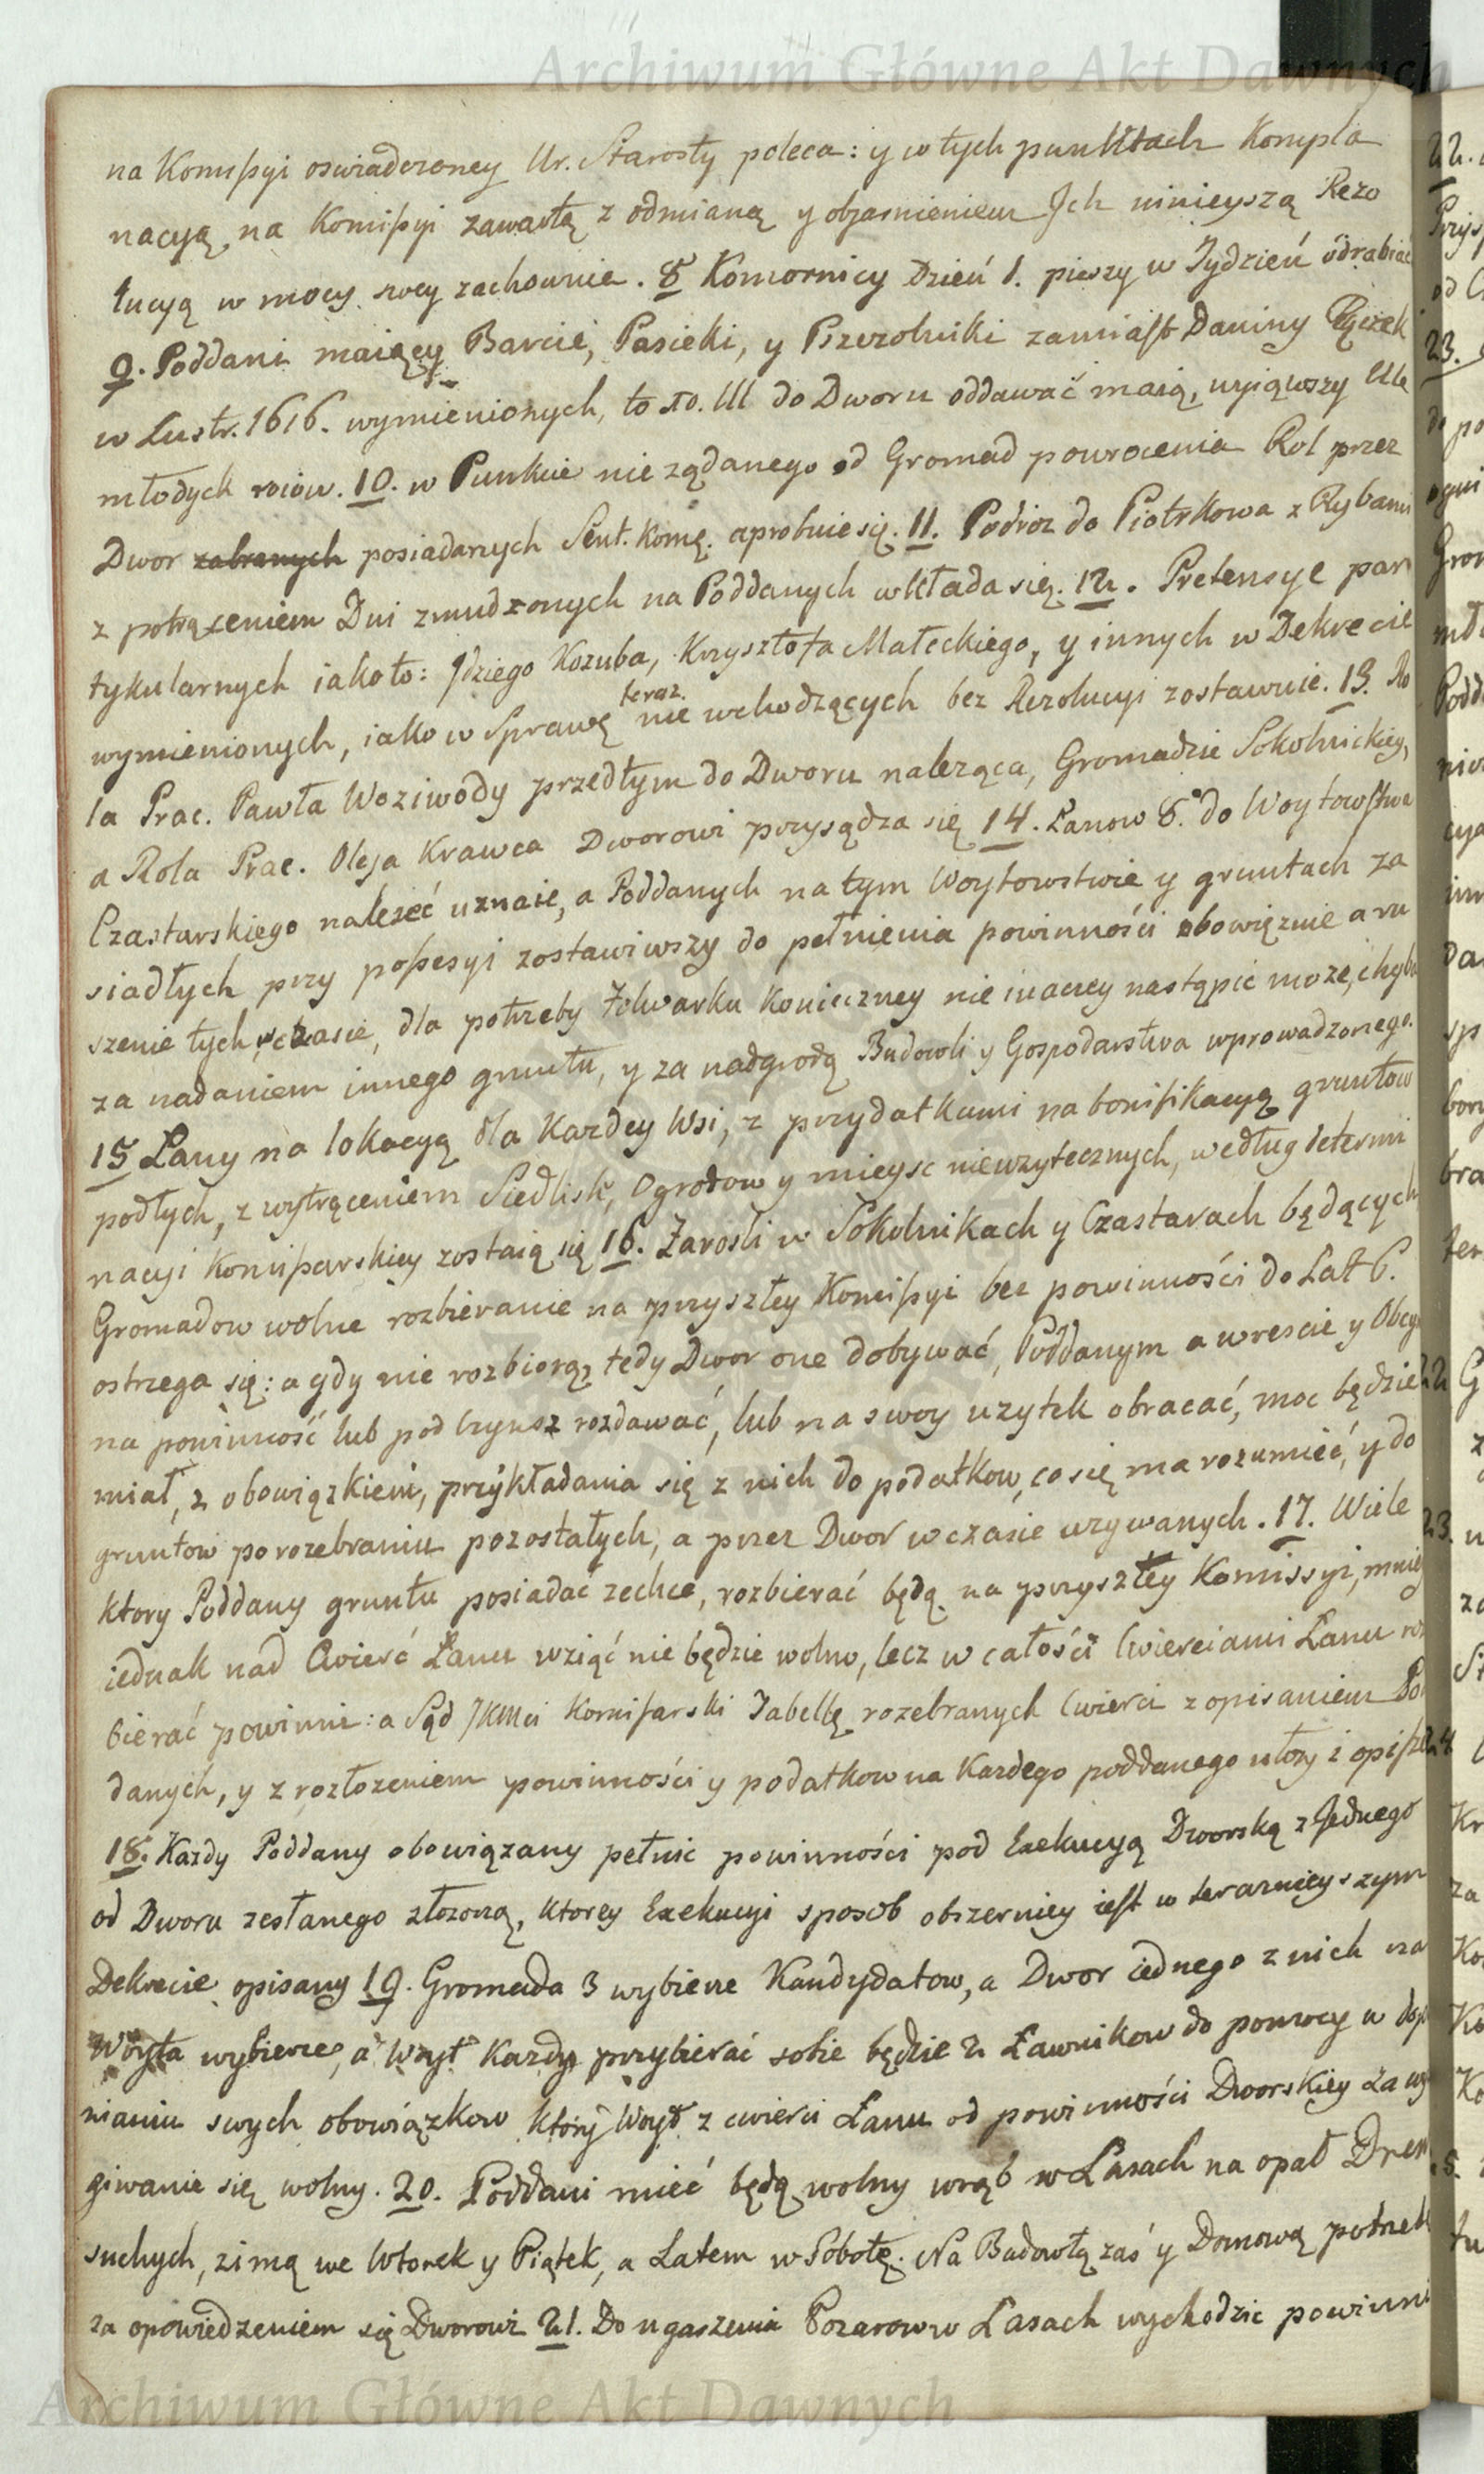 Archiwum Główne Akt Dawnych
na Komissyi oswiadczoney Ur. Starosty poleca: y w tych punktach Kompla
nacyą, na Komissyi zawartą z odmianą y objasnieniem Jch ninieyszą Rezo
lucyą w mocy swey zachowuie. 8 Komornicy Dzień 1. pieszy w Tydzień odrabiać
9. Poddani maiący Barcie, Pasieki, y Pszczolniki zamiast Daniny Rączek
w Lustr. 1616. wymienionych, to do Dworu oddawać maią, wyiąwszy Ule
młodych roiow. 10. w Punkcie nie ządanego od Gromad powrocenia Rol przez
Dwor zabranych posiadanych Sent. Komę. aprobuie się. 11. Podroz do Piotrkowa z Rybami
z potrąceniem Dni zmudzonych na Poddanych wkłada się. 12. Pretensye par
tykularnych iakoto: Jdziego Kozuba, Krzysztofa Małeckiego, y innych w Dekrecie
wymienionych, iako w Sprawę teraz nie wchodzących bez Rezolucyi zostawuie. 13. Ro
la Prac. Pawła Woziwody przedtym do Dworu naleząca, Gromadzie Sokolnickiey,
a Rola Prac. Oleja Krawca Dworowi przysądza się 14. Łanow 8. do Woytowstwa
Czastarskiego nalezéć uznaie, a Poddanych na tym Woytowstwie y gruntach za
siadłych przy possesyi zostawiwszy do pełnienia powinności obowięzuie a ru
szenie tych w czasie, dla potrzeby Folwarku Konieczney nie inaczey nastąpić moze, chyba
za nadaniem innego gruntu, y za nadgrodą Budowli y Gospodarstwa wprowadzonego.
15 Łany na lokacyą dla Kazdey Wsi, z przydatkami na bonifikacyą gruntow
podłych, z wytrąceniem Siedlisk, Ogrodow y mieysc nieuzytecznych, według determi
nacyi Komissarskiey zostaią się 16. Zarośli w Sokolnikach y Czastarach będących
Gromadow wolne rozbieranie na przyszłey Komissyi bez powinności do Lat 6.
ostrzega się: a gdy nie rozbiorą, tedy Dwor one dobywać, Poddanym a wreście y Obcym
na powinność lub pod Czynsz rozdawać, lub na swoy uzytek obracać, moc będzie
miał, z obowiązkiem, przykładania się z nich do podatkow, co się ma rozumieć, y do
gruntow po rozebraniu pozostałych, a przez Dwor w czasie uzywanych. 17. Wiele
ktory Poddany gruntu posiadać zechce, rozbierać będą na przyszłey Komissyi, mniey
iednak nad Cwierć Łanu wziąć nie będzie wolno, lecz w całości Cwierciami Łanu roz
bierać powinni: a Sąd JKMci Komissarski Tabellę rozebranych Cwierci z opisaniem Pod
danych, y z rozłozeniem powinności y podatkow na Kazdego poddanego ułozy i opisze
18. Kazdy Poddany obowiązany pełnic powinności pod Exekucyą Dworską z Jednego
od Dworu zesłanego złozoną, ktorey Exekucyi sposob obszerniey iest w teraznieyszym
Dekrecie opisany 19. Gromada 3 wybierze Kandydatow, a Dwor iednego z nich na
Woyta wybierze, a Woyt Kazdy przybierać sobie będzie 2. Ławnikow do pomocy w dopeł
nianiu swych obowiązkow ktory Woyt z cwierci Łanu od powinności Dworskiey za wy
giwanie się wolny. 20. Poddani mieć będą wolny wrąb w Lasach na opał Drew
suchych, zimą we Wtorek y Piątek, a Latem w Sobotę. Na Budowlą zaś y Domową potrzebę
za opowiedzeniem się Dworowi 21. Do ugaszenia Pozarow w Lasach wychodzic powinni
Archiwum Główne Akt Dawnych